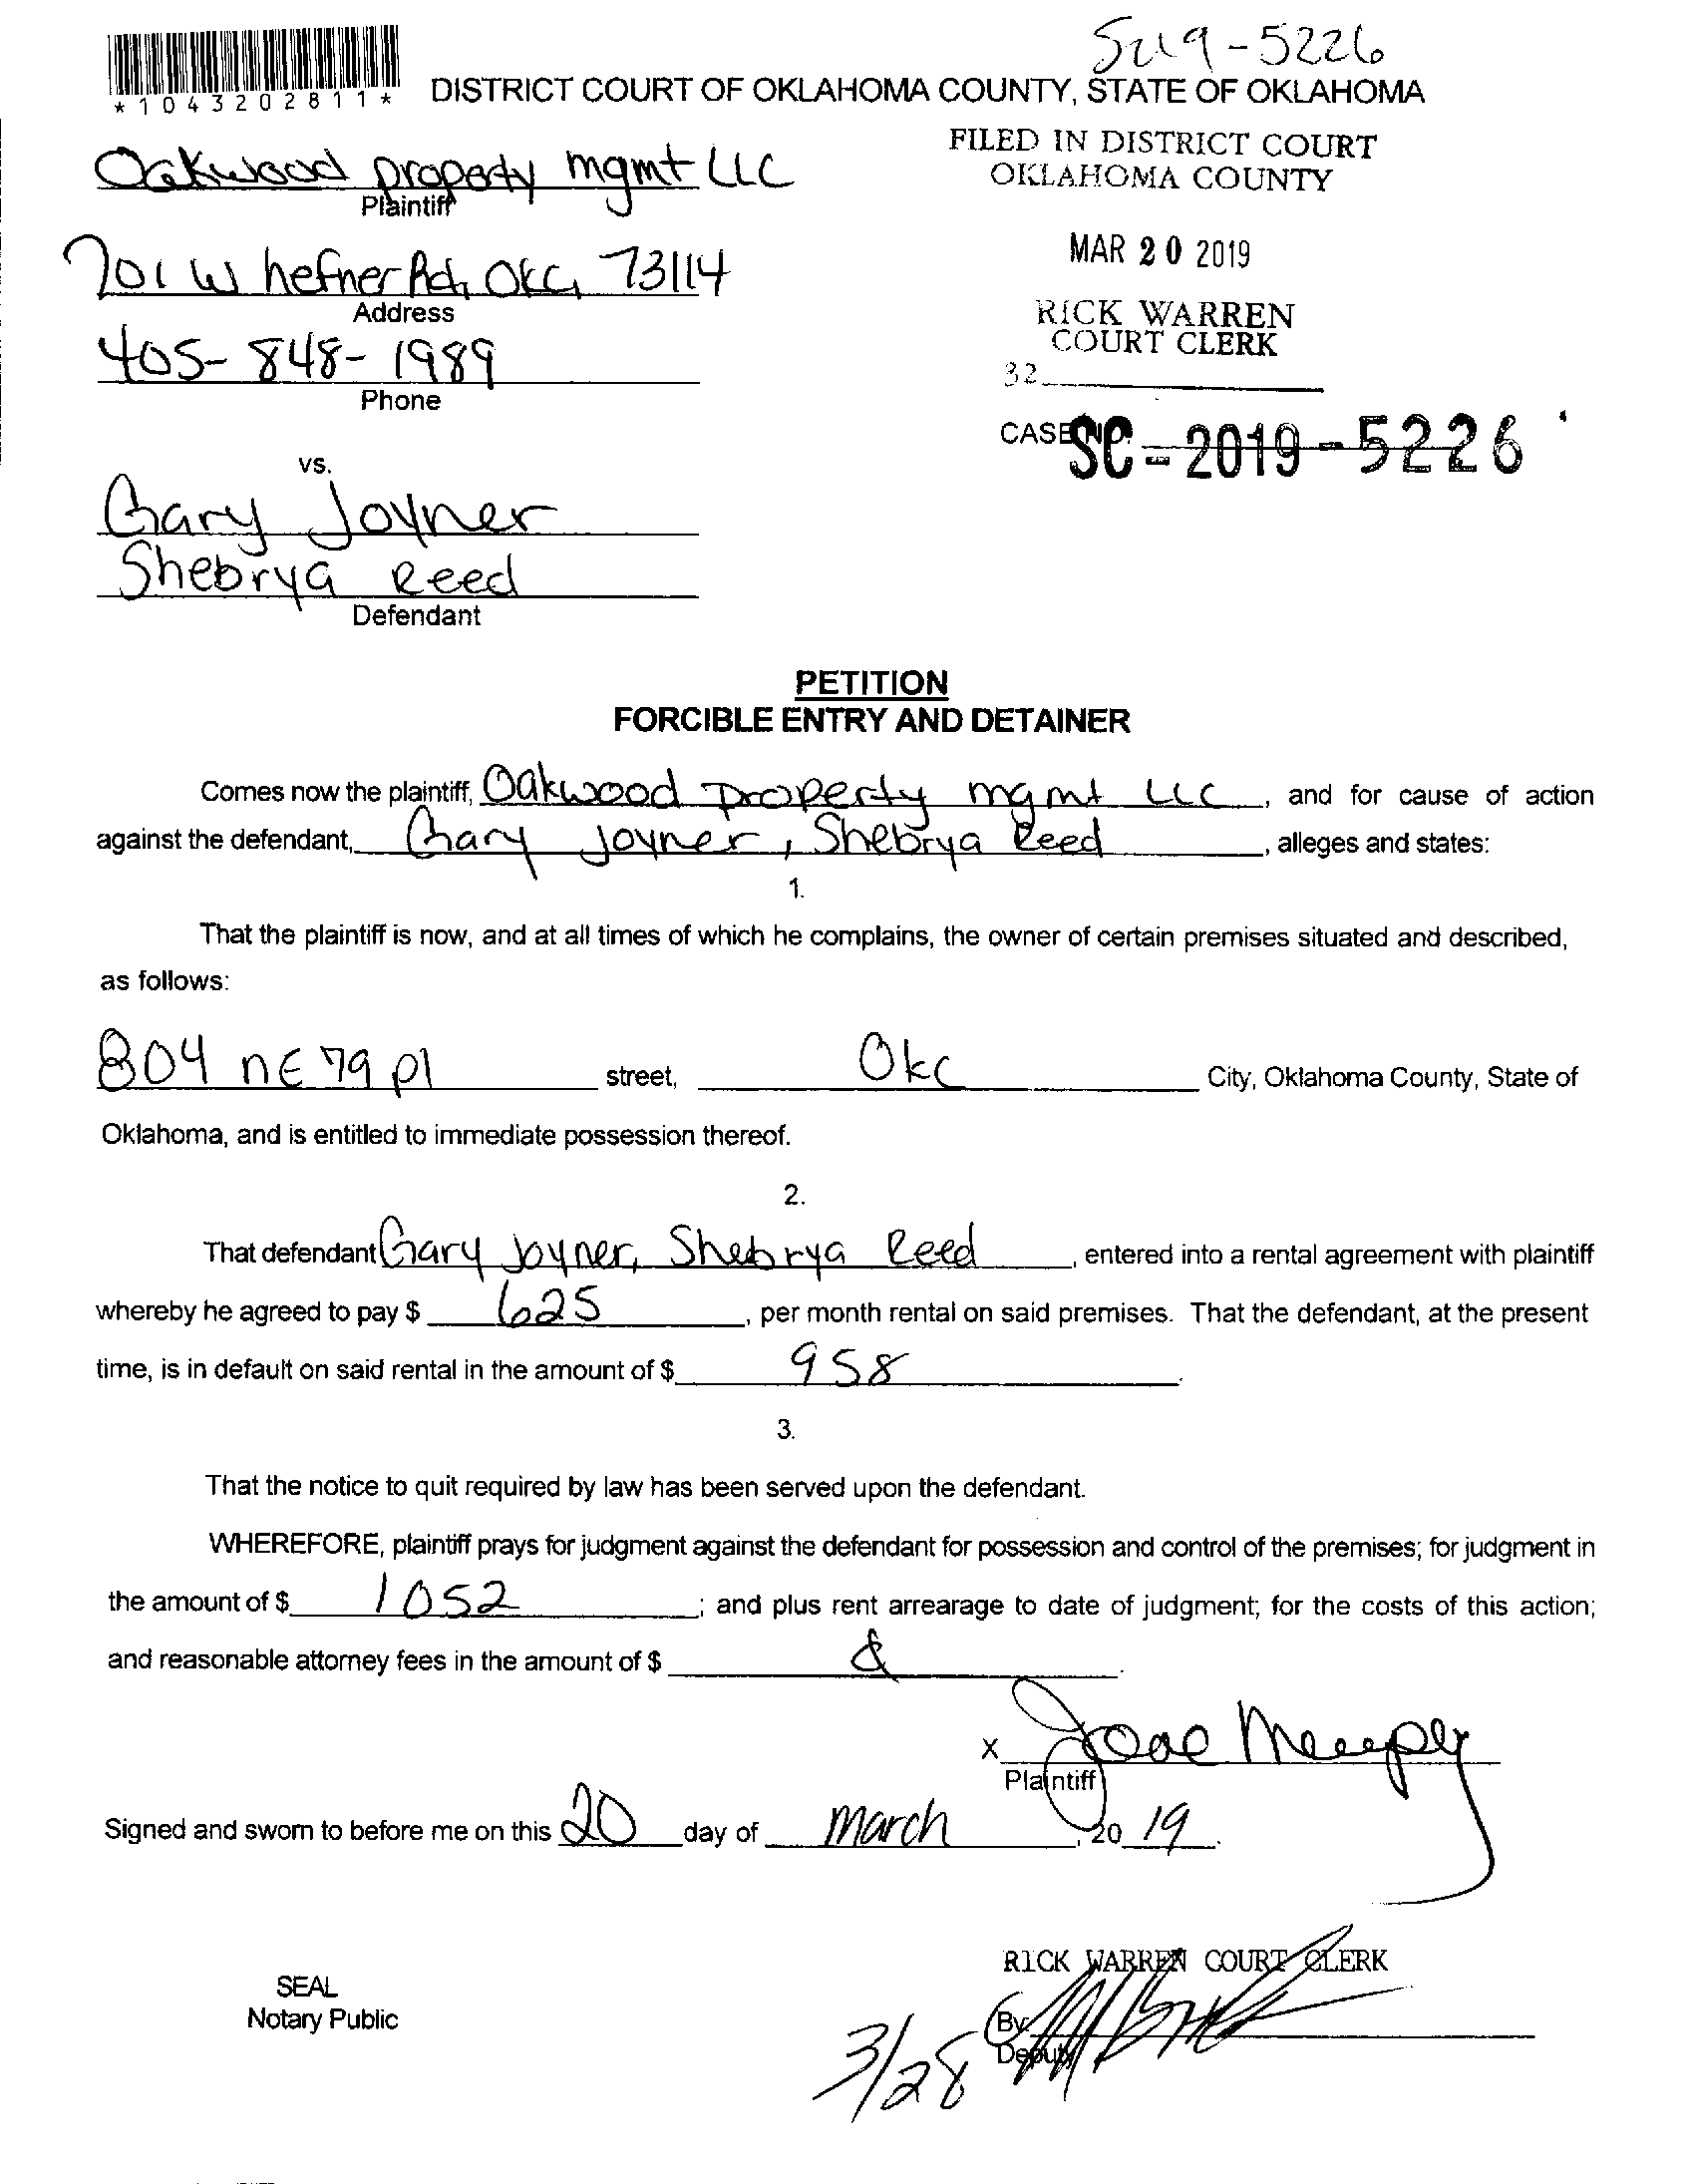 SC19-5226
*1043202811*
DISTRICT COURT OF OKLAHOMA COUNTY, STATE OF OKLAHOMA
FILED IN DISTRICT COURT
OKLAHOMA COUNTY
Oakwood property mgmt LLC
Plaintiff
MAR 20 2019
701 W hefner Rd, OKC, 73114
Address
RICK WARREN
COURT CLERK
405-848-1989
Phone
32
CASE NO. SC-2019-5226
vs.
Gary Joyner
Shebrya Reed
Defendant
PETITION
FORCIBLE ENTRY AND DETAINER
Comes now the plaintiff, Oakwood property mgmt LLC, and for cause of action
against the defendant, Gary Joyner, Shebrya Reed, alleges and states:
1.
That the plaintiff is now, and at all times of which he complains, the owner of certain premises situated and described,
as follows:
804 NE 79 pl street, OKC City, Oklahoma County, State of
Oklahoma, and is entitled to immediate possession thereof.
2.
That defendant Gary Joyner, Shebrya Reed, entered into a rental agreement with plaintiff
whereby he agreed to pay $ 625, per month rental on said premises. That the defendant, at the present
time, is in default on said rental in the amount of $ 958.
3.
That the notice to quit required by law has been served upon the defendant.
WHEREFORE, plaintiff prays for judgment against the defendant for possession and control of the premises; for judgment in
the amount of $ 1052; and plus rent arrearage to date of judgment; for the costs of this action;
and reasonable attorney fees in the amount of $
X
Plaintiff
Signed and sworn to before me on this 20 day of March, 20 19.
RICK WARREN COURT CLERK
SEAL
Notary Public
By:
Deputy
3/28